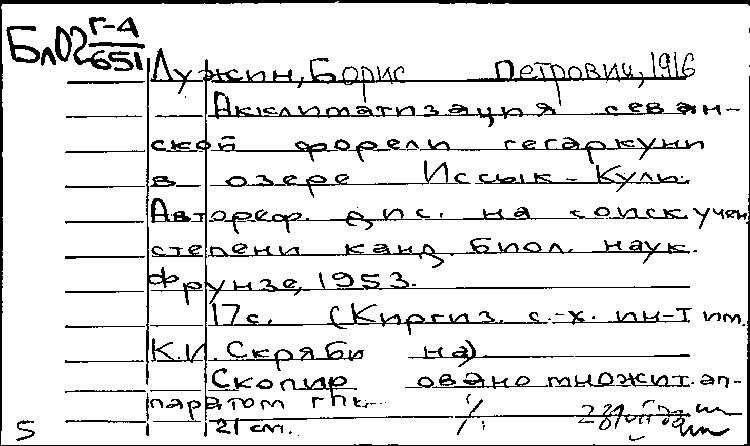 Бл02 Г-4/651
Лужин, Борис Петрович, 1916
Акклиматизация севан-
ской форели гегаркуни
в озере Иссык-Куль.
Автореф. дис. на соиск. учен.
степени канд. биол. наук.
Фрунзе, 1953.
17с. (Киргиз. с.-х. ин-т им.
К.И. Скряби на)
Скопир овано множит. ап-
паратом
21 см.
5